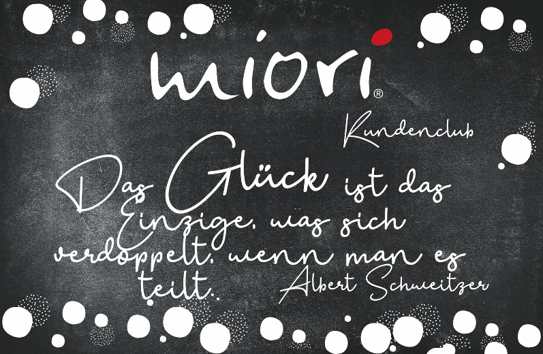 miori®
Kundenclub
Das Glück ist das
Einzige, was sich
verdoppelt, wenn man es
teilt.
Albert Schweitzer